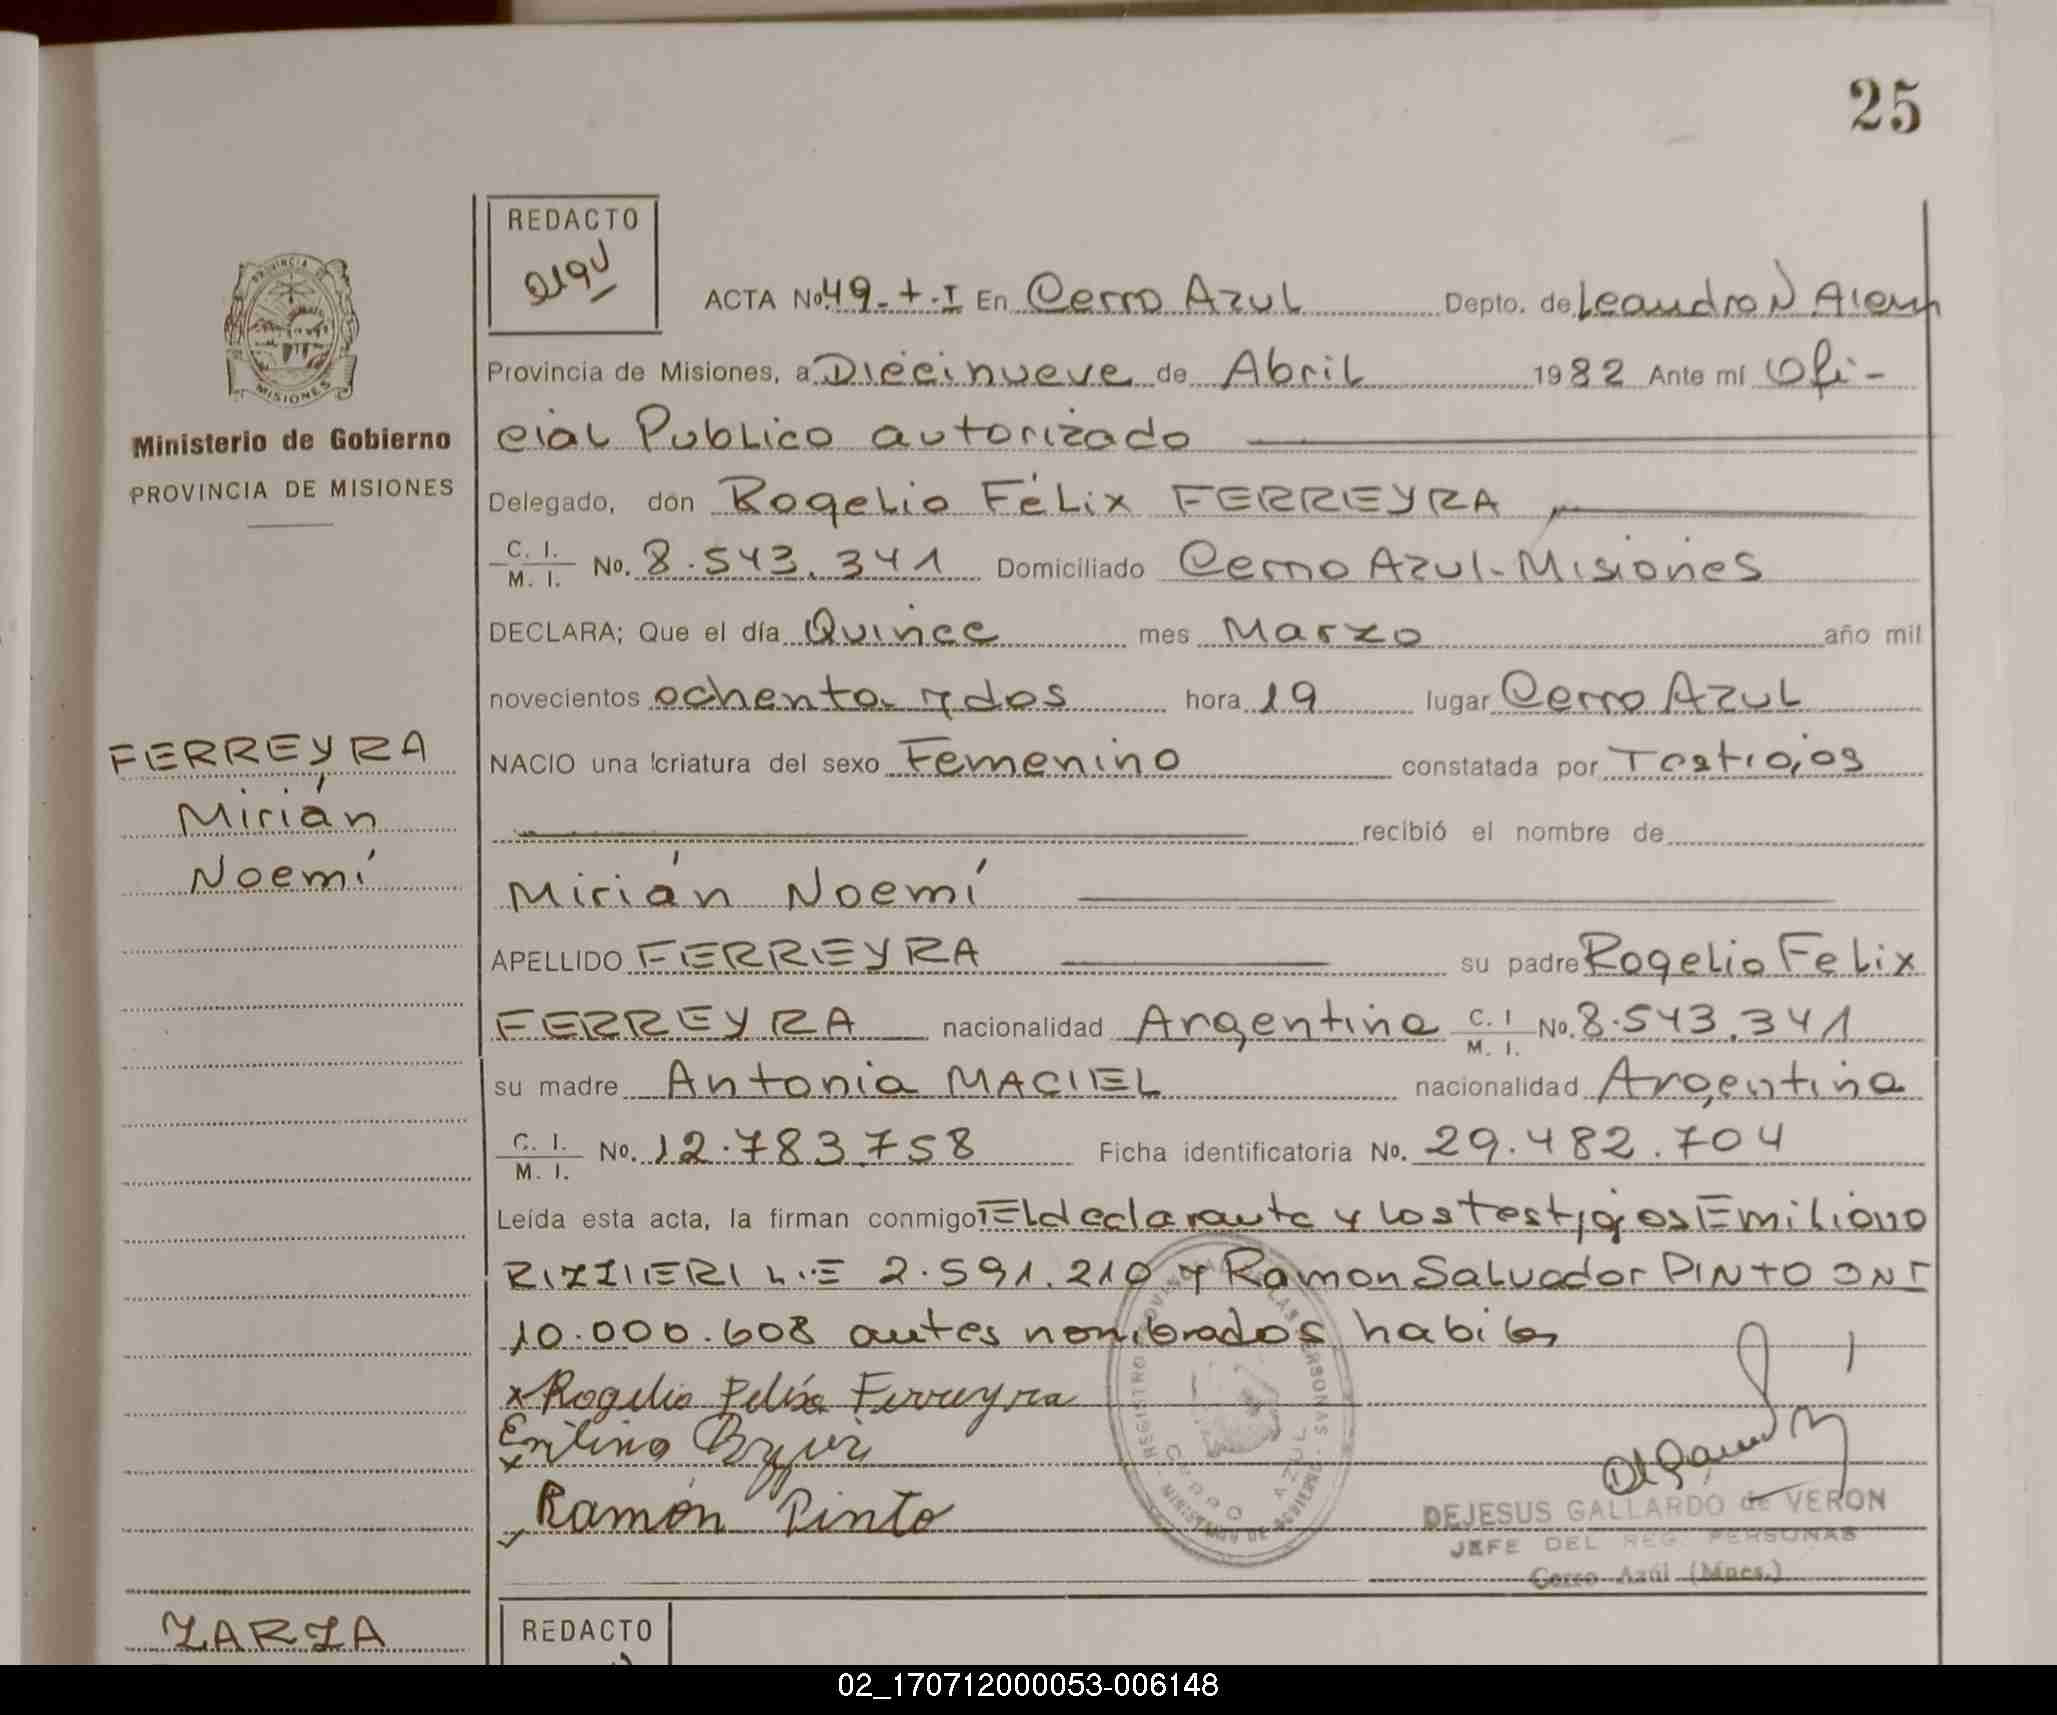 25
REDACTO
ACTA No 49 - t - I En Cerro Azul Depto. de Leandro N Alem
Provincia de Misiones, a Diecinueve de Abril 1982 Ante mí Ofi-
cial Publico autorizado
Delegado, don Rogelio Félix FERREYRA
C. I. / M. I. No. 8.543.341 Domiciliado Cerro Azul - Misiones
DECLARA; Que el día Quince mes Marzo año mil
novecientos ochenta y dos hora 19 lugar Cerro Azul
NACIO una criatura del sexo Femenino constatada por Testigos
recibió el nombre de
Mirián Noemí
APELLIDO FERREYRA su padre Rogelio Felix
FERREYRA nacionalidad Argentina C. I / M. I. No. 8.543.341
su madre Antonia MACIEL nacionalidad Argentina
C. I. / M. I. No. 12.783.758 Ficha identificatoria No. 29.482.704
Leída esta acta, la firman conmigo El declarante y los testigos Emiliano
RIZZIERI L.E 2.591.210 y Ramon Salvador PINTO DNI
10.000.608 antes nombrados habiles
x Rogelio Felix Ferreyra
Ramón Pinto
DEJESUS GALLARDO de VERON
JEFE DEL REG. PERSONAS
Cerro Azúl (Mnes.)
PROVINCIA DE
MISIONES
Ministerio de Gobierno
PROVINCIA DE MISIONES
FERREYRA
Mirián
Noemí
ZARZA
REDACTO
02_170712000053-006148